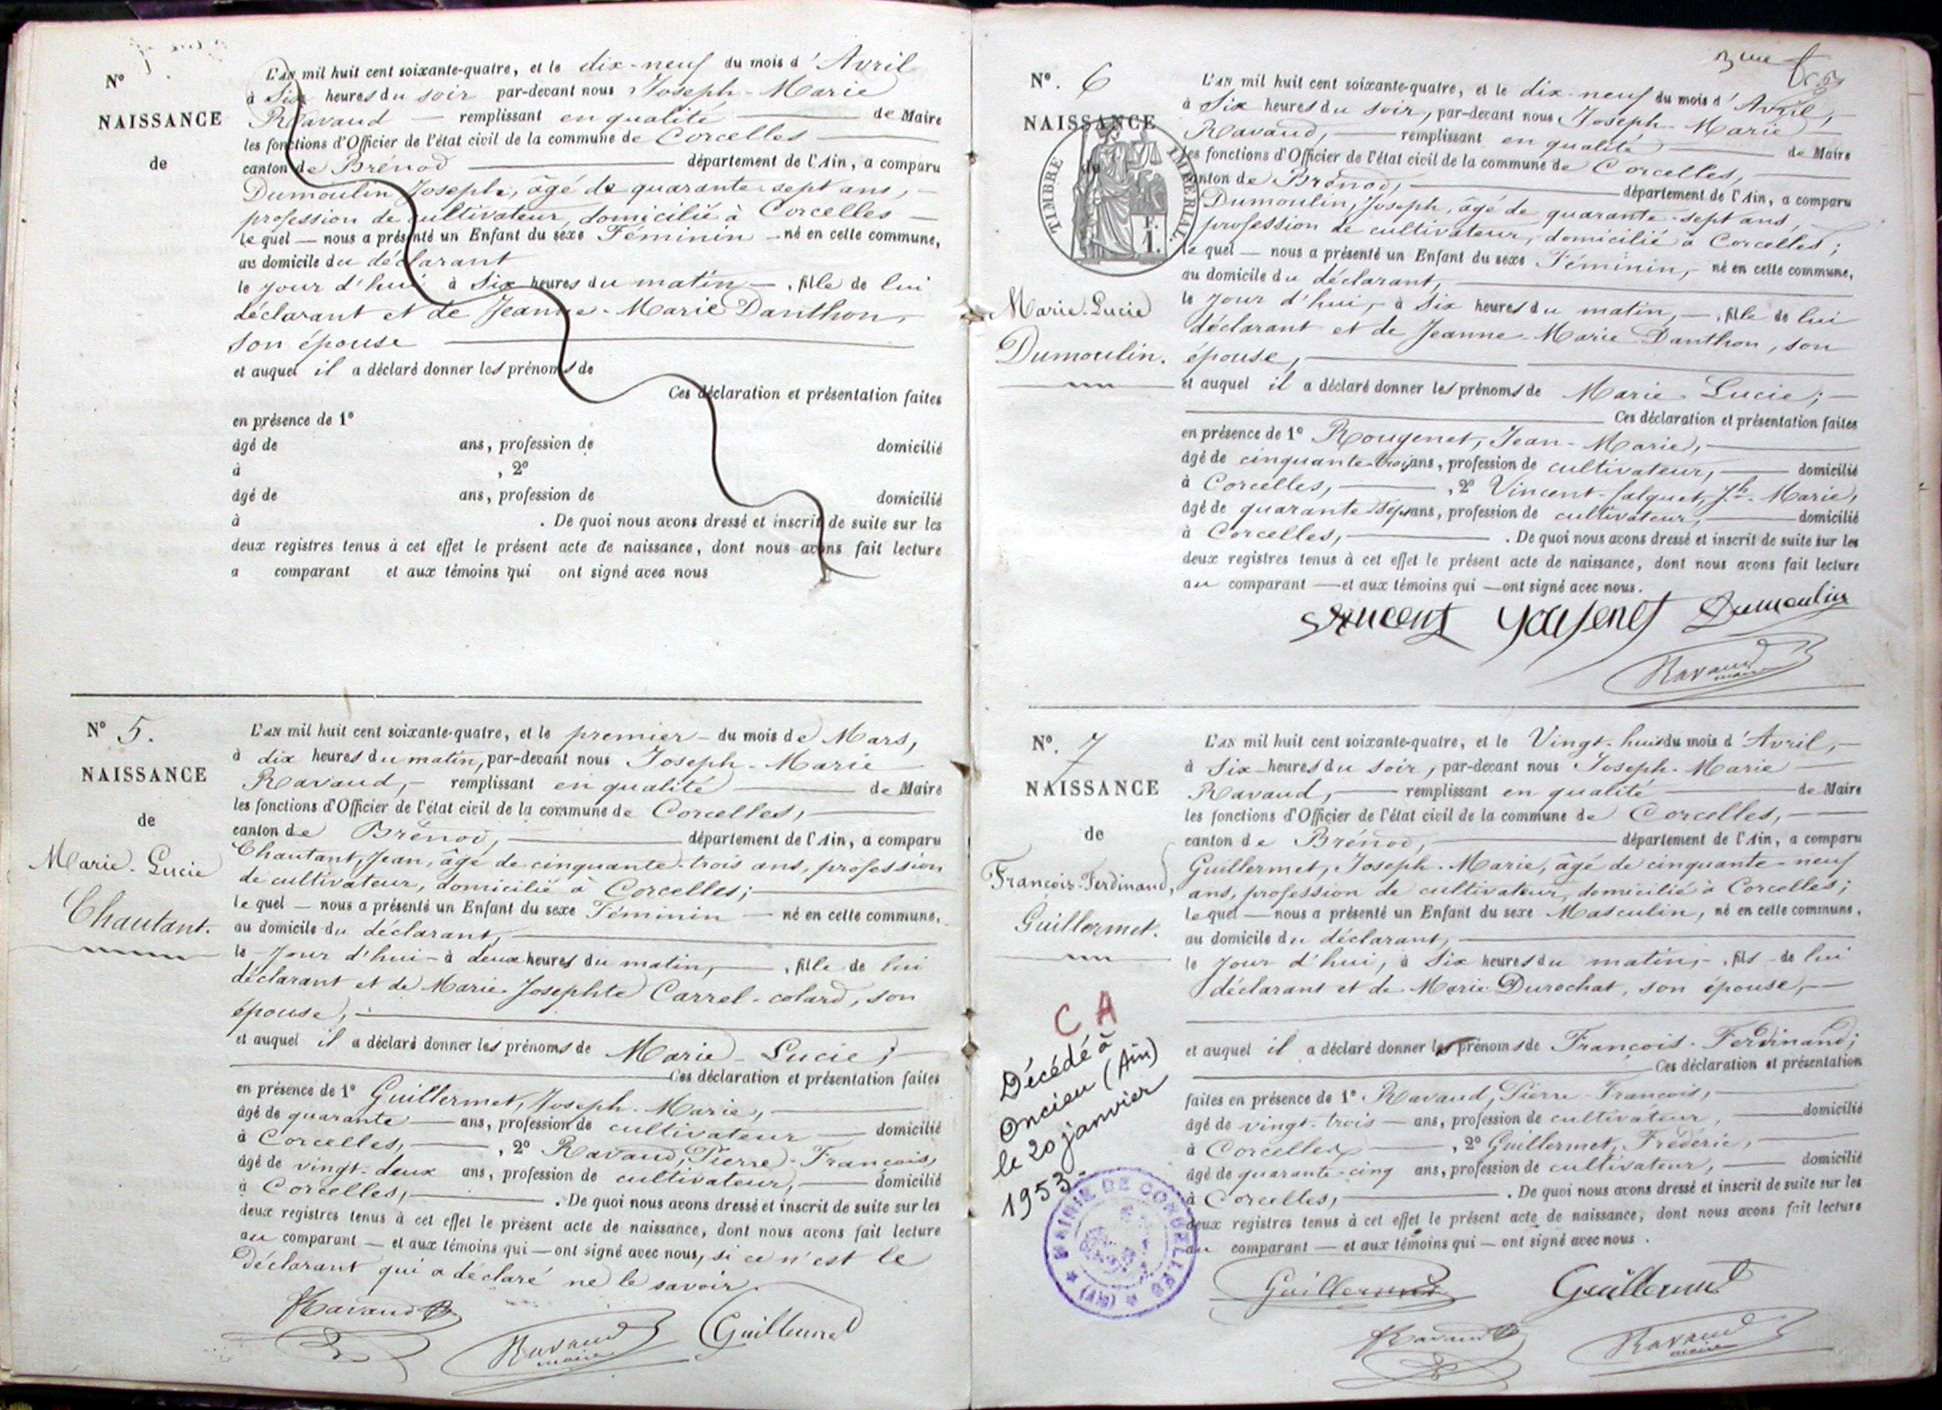 N°
NAISSANCE
de
L'AN mil huit cent soixante-quatre, et le dix-neuf du mois d'Avril
à Six heures du soir par-devant nous Joseph-Marie
Ravaud — remplissant en qualité — de Maire
les fonctions d'Officier de l'état civil de la commune de Corcelles —
canton de Brénod — département de l'Ain, a comparu
Dumoulin Joseph, âgé de quarante-sept ans, —
profession de cultivateur, domicilié à Corcelles —
le quel — nous a présenté un Enfant du sexe Féminin — né en cette commune,
au domicile du déclarant
le jour d'hui à Six heures du matin, — , fille de lui
déclarant et de Jeanne-Marie Danthon,
son épouse —
et auquel il a déclaré donner les prénoms de
Ces déclaration et présentation faites
en présence de 1°
âgé de ans, profession de domicilié
à , 2°
âgé de ans, profession de domicilié
à . De quoi nous avons dressé et inscrit de suite sur les
deux registres tenus à cet effet le présent acte de naissance, dont nous avons fait lecture
a comparant et aux témoins qui ont signé avec nous
N° 5.
NAISSANCE
de
Marie-Lucie
Chautant.
L'AN mil huit cent soixante-quatre, et le premier — du mois de Mars,
à dix heures du matin, par-devant nous Joseph-Marie
Ravaud, — remplissant en qualité — de Maire
les fonctions d'Officier de l'état civil de la commune de Corcelles, —
canton de Brénod, — département de l'Ain, a comparu
Chautant, Jean, âgé de cinquante-trois ans, profession
de cultivateur, domicilié à Corcelles; —
le quel — nous a présenté un Enfant du sexe Féminin — né en cette commune,
au domicile du déclarant, —
le jour d'hui — à deux heures du matin, — , fille de lui
déclarant et de Marie-Josephte Carrel-colard, son
épouse, —
et auquel il a déclaré donner les prénoms de Marie-Lucie; —
Ces déclaration et présentation faites
en présence de 1° Guillermet, Joseph-Marie, —
âgé de quarante — ans, profession de cultivateur — domicilié
à Corcelles, — , 2° Ravaud, Pierre-François,
âgé de vingt-deux ans, profession de cultivateur, — domicilié
à Corcelles, — . De quoi nous avons dressé et inscrit de suite sur les
deux registres tenus à cet effet le présent acte de naissance, dont nous avons fait lecture
au comparant — et aux témoins qui — ont signé avec nous, si ce n'est le
Déclarant qui a déclaré ne le savoir.
Ravaud
Ravaud
maire
Guillermet
N°. 6
NAISSANCE
TIMBRE IMPERIAL
1 F.
Marie-Lucie
Dumoulin.
L'AN mil huit cent soixante-quatre, et le dix-neuf du mois d'Avril,
à Six heures du soir, par-devant nous Joseph-Marie
Ravaud, — remplissant en qualité — de Maire
les fonctions d'Officier de l'état civil de la commune de Corcelles, —
canton de Brénod, — département de l'Ain, a comparu
Dumoulin, Joseph, âgé de quarante-sept ans, —
profession de cultivateur, domicilié à Corcelles;
le quel — nous a présenté un Enfant du sexe Féminin, — né en cette commune,
au domicile du déclarant, —
le jour d'hui, — à Six heures du matin, — , fille de lui
déclarant et de Jeanne-Marie Danthon, son
épouse, —
et auquel il a déclaré donner les prénoms de Marie-Lucie; —
Ces déclaration et présentation faites
en présence de 1° Rougenet, Jean-Marie, —
âgé de cinquante-trois ans, profession de cultivateur, — domicilié
à Corcelles, — , 2° Vincent-falquet, Jh-Marie,
âgé de quarante-sept ans, profession de cultivateur, — domicilié
à Corcelles, — . De quoi nous avons dressé et inscrit de suite sur les
deux registres tenus à cet effet le présent acte de naissance, dont nous avons fait lecture
au comparant — et aux témoins qui — ont signé avec nous.
Vincent Rougenet Dumoulin
Ravaud
maire
N°. 7
NAISSANCE
de
François-Ferdinand,
Guillermet.
C A
Décédé à
Oncieu (Ain)
le 20 janvier
1953.
MAIRIE DE CORCELLES (AIN)
L'AN mil huit cent soixante-quatre, et le Vingt-huit du mois d'Avril, —
à Six — heures du soir, par-devant nous Joseph-Marie —
Ravaud, — remplissant en qualité — de Maire
les fonctions d'Officier de l'état civil de la commune de Corcelles, —
canton de Brénod, — département de l'Ain, a comparu
Guillermet, Joseph-Marie, âgé de cinquante-neuf
ans, profession de cultivateur, domicilié à Corcelles;
le quel — nous a présenté un Enfant du sexe Masculin, né en cette commune,
au domicile du déclarant, —
le jour d'hui, à Six heures du matin, — , fils — de lui
déclarant et de Marie Durochat, son épouse, —
et auquel il a déclaré donner les prénoms de François-Ferdinand;
Ces déclaration et présentation
faites en présence de 1° Ravaud, Pierre-François, —
âgé de vingt-trois — ans, profession de cultivateur, — domicilié
à Corcelles — , 2° Guillermet, Frédéric, —
âgé de quarante-cinq ans, profession de cultivateur, — domicilié
à Corcelles, — . De quoi nous avons dressé et inscrit de suite sur les
deux registres tenus à cet effet le présent acte de naissance, dont nous avons fait lecture
au comparant — et aux témoins qui — ont signé avec nous.
Guillermet Guillermet
Ravaud
Ravaud
maire